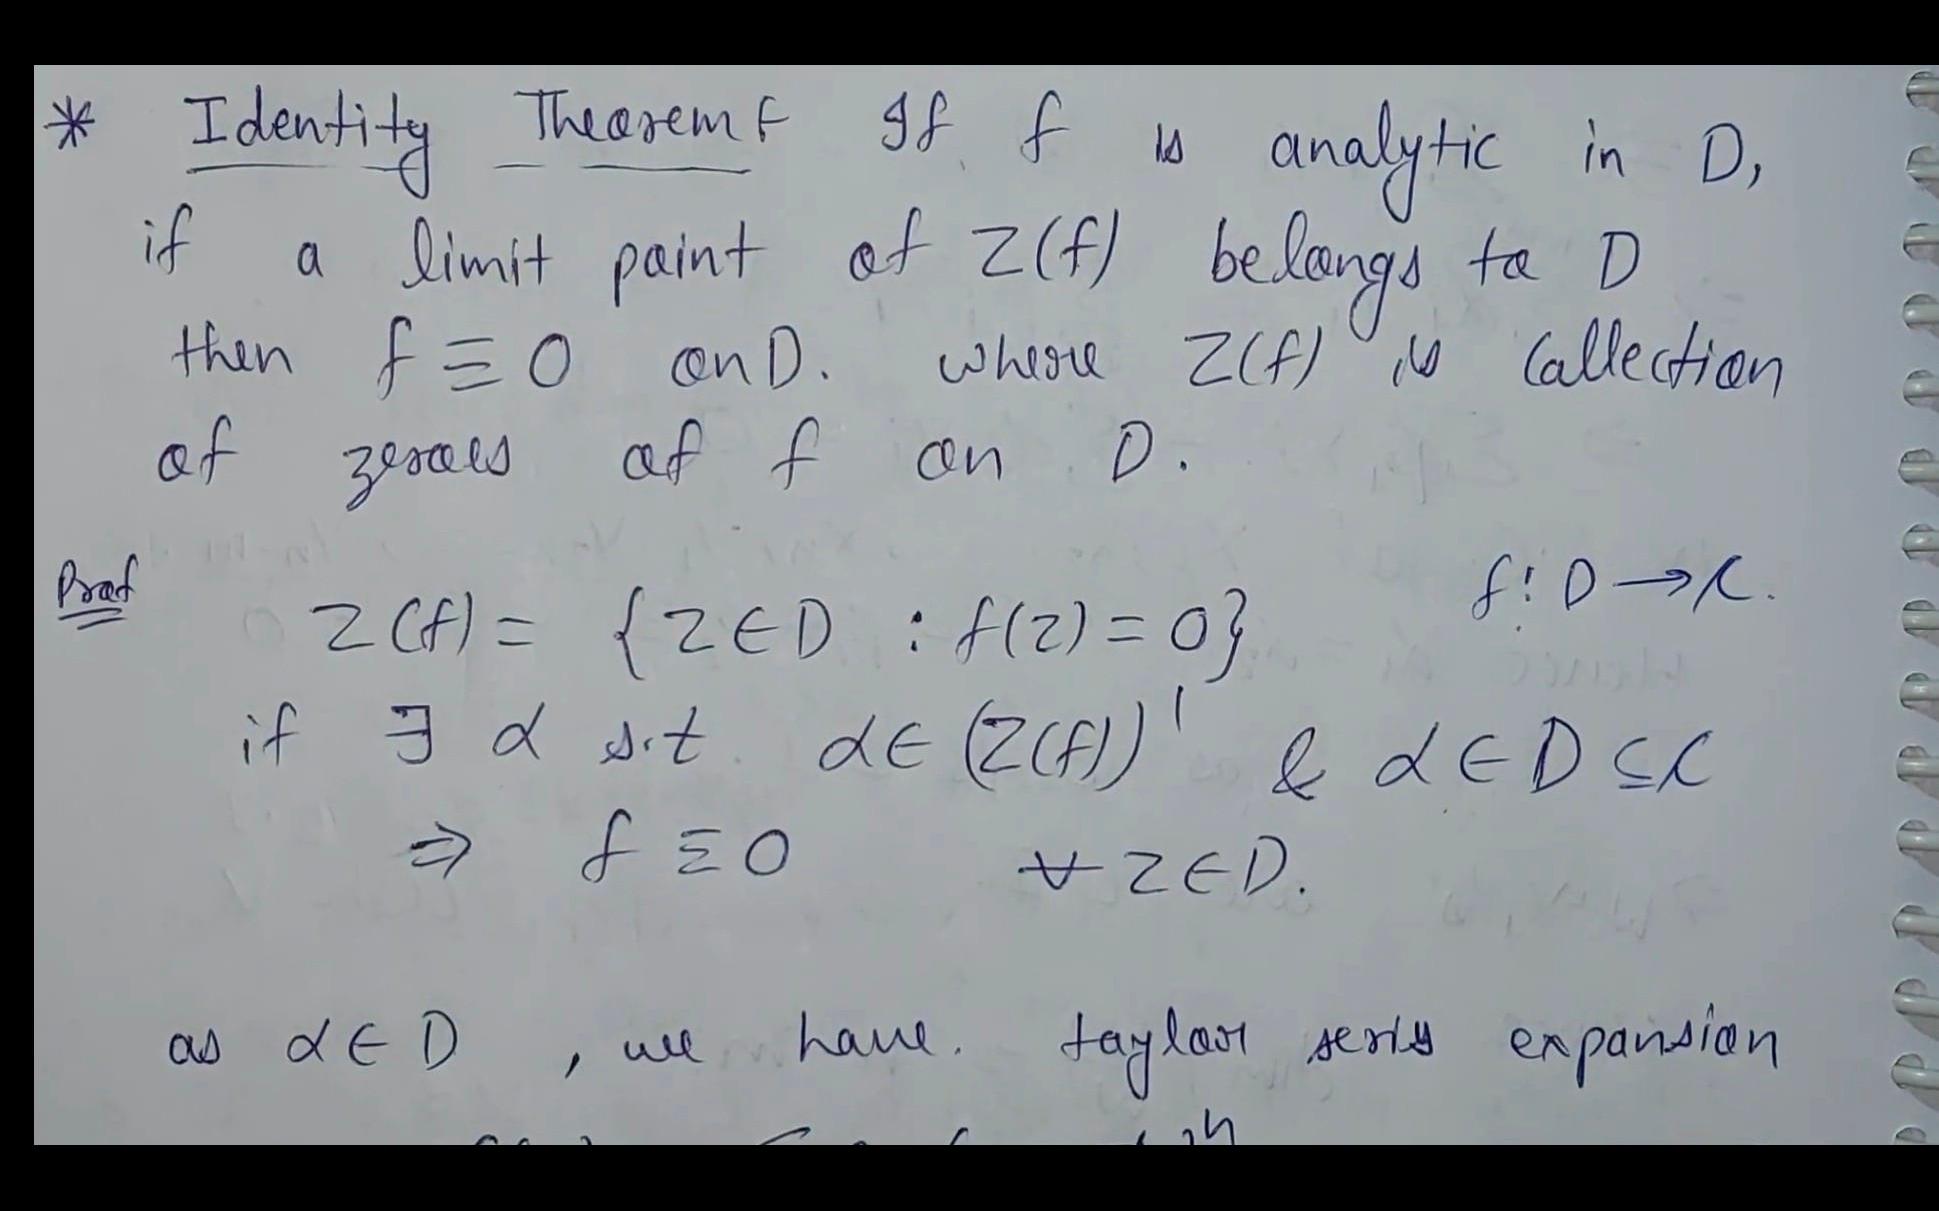 * Identity Theorem If f is analytic in D,
if a limit point of Z(f) belongs to D
then f ≡ 0 on D. where Z(f) is Collection
of zeroes of f on D.
Proof
f: D → ℂ.
Z(f) = {z ∈ D : f(z) = 0}
if ∃ α s.t. α ∈ (Z(f))' & α ∈ D ⊆ ℂ
⇒ f ≡ 0 ∀ z ∈ D.
as α ∈ D , we have. taylor series expansion